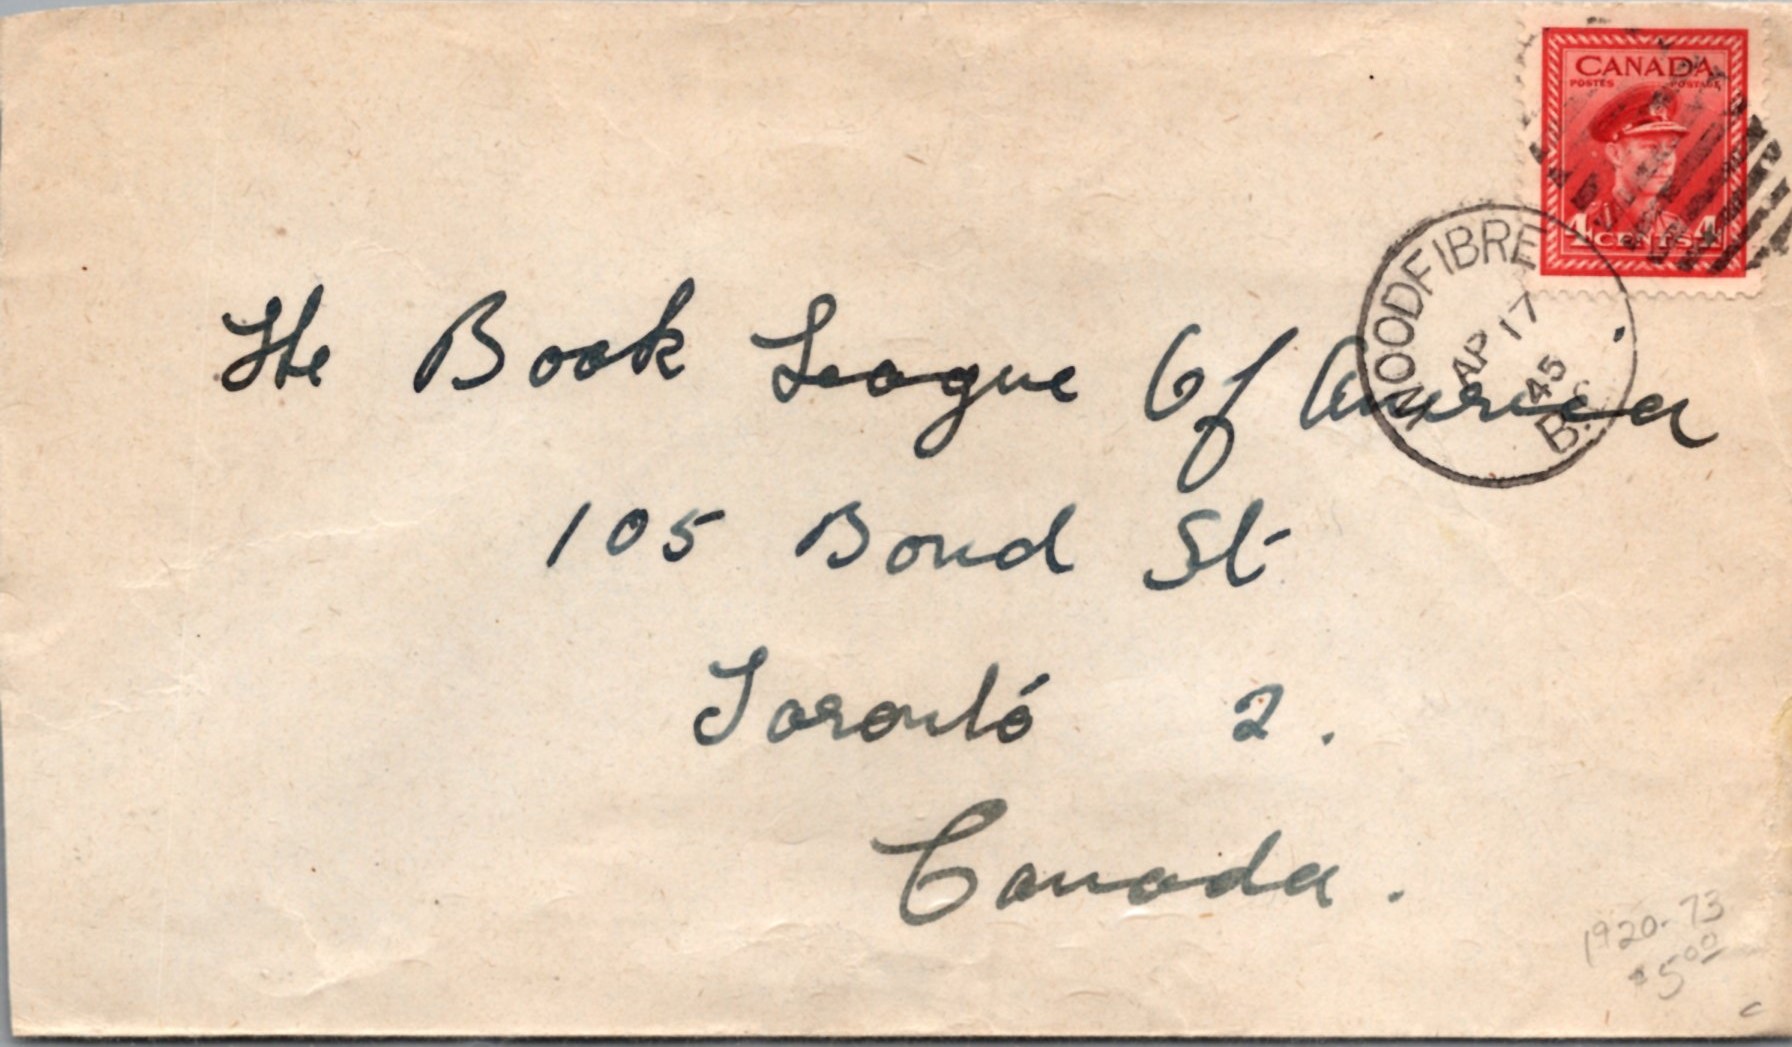 CANADA
POSTES POSTAGE
4 CENTS 4
WOODFIBRE
AP 17
45
B.C.
The Book League Of America
105 Bond St
Toronto 2.
Canada.
1920-73
$5.00
c